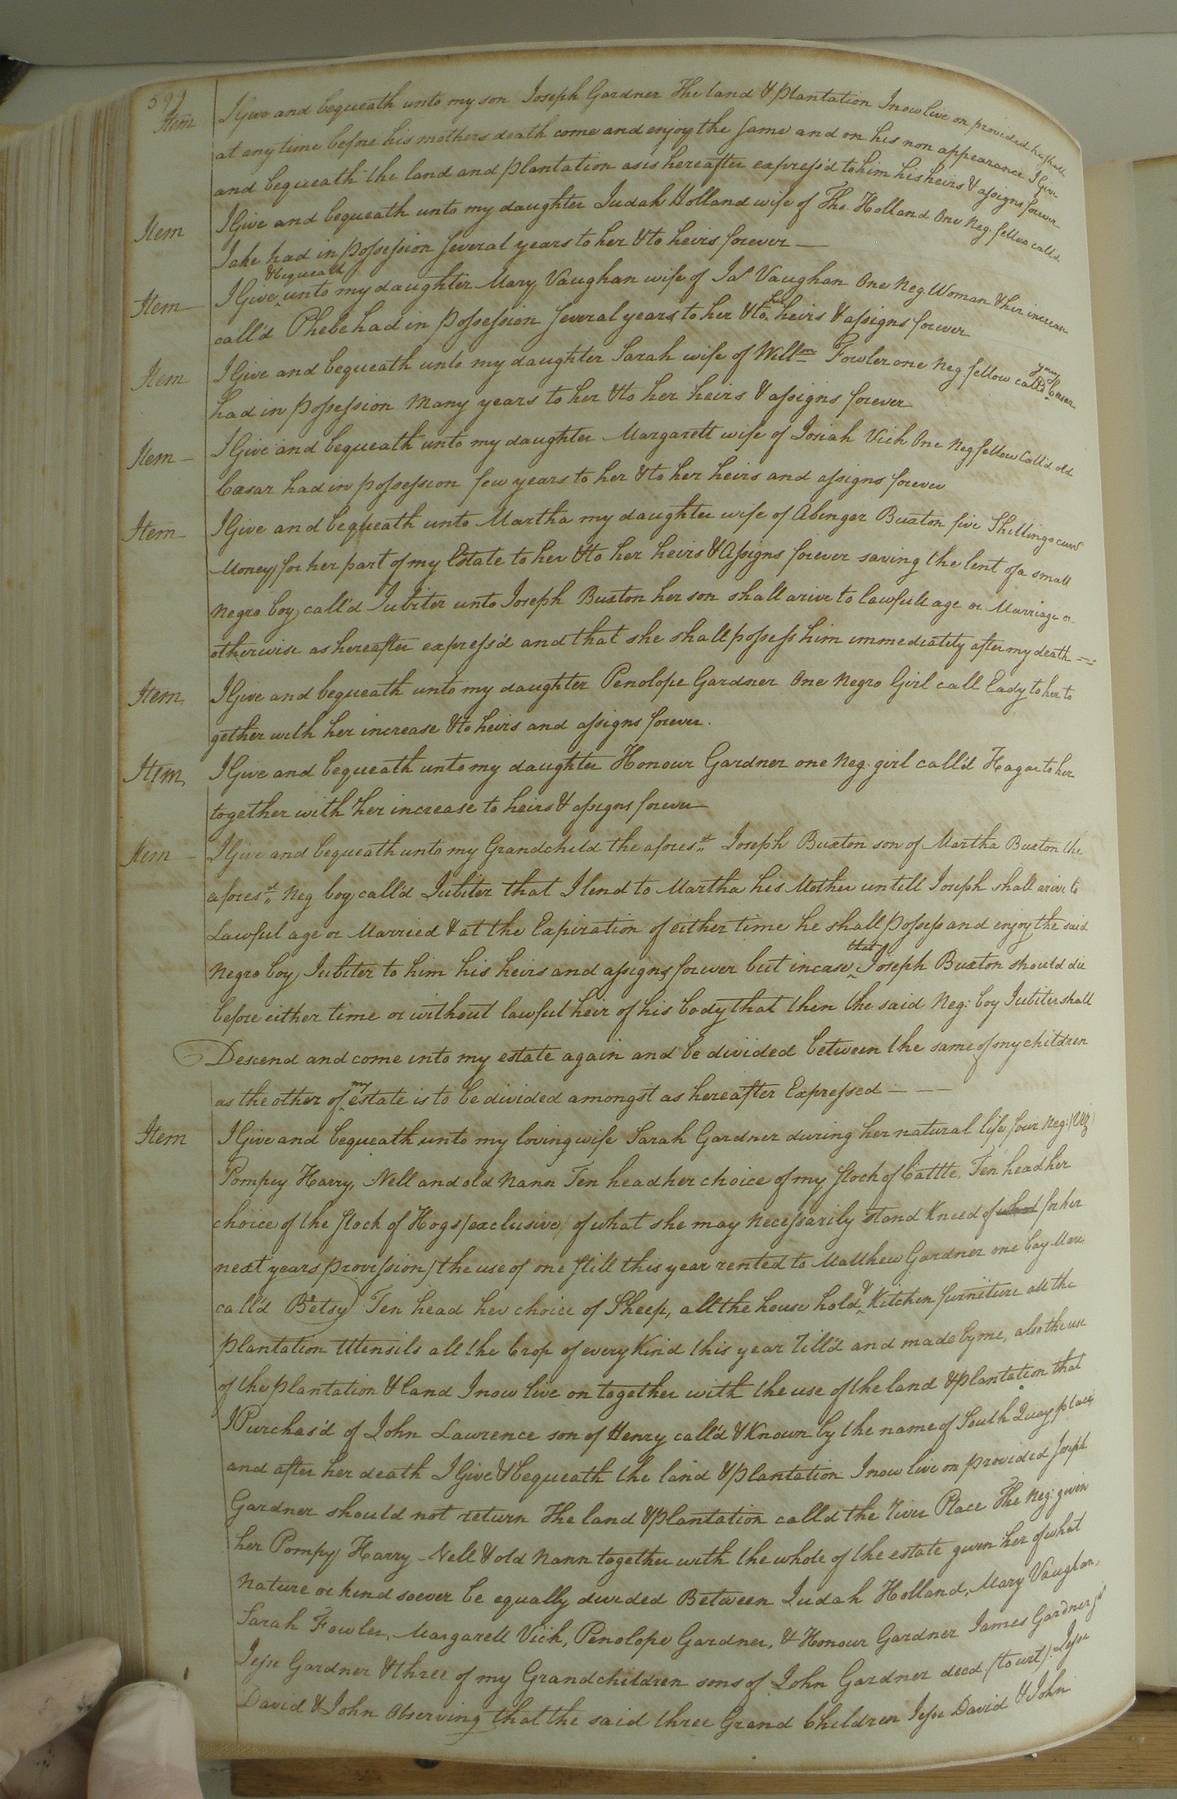 599
Item I Give and bequeath unto my son Joseph Gardner The land & Plantation I now live on provided he shall
at any time before his mothers death come and enjoy the same and on his non appearance I Give
and bequeath the land and plantation as is hereafter express'd to him his heirs & assigns forever
Item I Give and bequeath unto my daughter Judah Holland wife of Tho. Holland One Neg. fellow call'd
Jake had in Possession several years to her & to heirs forever —
Item — I Give & bequeath unto my daughter Mary Vaughan wife of Jas Vaughan One Neg Woman & her increase
call'd Phebe had in Possession several years to her & to her heirs & assigns forever
Item I Give and bequeath unto my daughter Sarah wife of Willm Fowler one Neg. fellow call'd young Ceaser
had in possession Many years to her & to her heirs & assigns forever
Item — I Give and bequeath unto my daughter Margarett wife of Josiah Vick One Neg fellow Call'd old
Cæsar had in possession few years to her & to her heirs and assigns forever
Item — I Give and bequeath unto Martha my daughter wife of Abinger Buxton five Shillings curr
Money for her part of my Estate to her & to her heirs & Assigns forever saving the lent of a small
Negro boy call'd Jubiter unto Joseph Buxton her son shall arive to lawfull age or Marriage or
otherwise as hereafter express'd and that she shall possess him immediately after my death —
Item I Give and bequeath unto my daughter Penolope Gardner One Negro Girl call Eady to her to
gether with her increase & to heirs and assigns forever.
Item I Give and bequeath unto my daughter Honour Gardner one Neg. girl call'd Hagar to her
together with her increase to heirs & assigns forever —
Item — I Give and bequeath unto my Grandchild the aforesd Joseph Buxton son of Martha Buxton the
aforesd Neg boy call'd Jubiter that I lend to Martha his Mother untill Joseph shall arive to
Lawful age or Married & at the Expiration of either time he shall Possess and enjoy the said
Negro boy Jubiter to him his heirs and assigns forever but incase that Joseph Buxton should die
before either time or without lawful heir of his body that then the said Neg: boy Jubiter shall
Descend and come into my estate again and be divided between the same of my children
as the other of my estate is to be divided amongst as hereafter Expressed — —
Item I Give and bequeath unto my loving wife Sarah Gardner during her natural life four Neg: (Viz)
Pompey Harry, Nell and old Nann Ten head her choice of my stock of Cattle. Ten head her
choice of the stock of Hogs (exclusive) of what she may necessarily stand kneed of what for her
next years provission) the use of one still this year rented to Matthew Gardner one bay Mare
call'd Betsy Ten head her choice of Sheep, all the house hold & Kitchen furniture all the
plantation Utensils all the Crop of every Kind this year Till'd and made by me, also the use
of the plantation & land I now live on together with the use of the land & plantation that
I Purchas'd of John Lawrence son of Henry call'd & Known by the name of South Quay place
and after her death I Give & bequeath the land & plantation I now live on provided Joseph
Gardner should not return the land & plantation call'd the River Place The Neg: given
her Pompy Harry Nell & old Nann together with the whole of the estate given her of what
Nature or kind soever be equally divided Between Judah Holland, Mary Vaughan,
Sarah Fowler, Margarett Vick, Penolope Gardner, & Honour Gardner James Gardner
Jesse Gardner & three of my Grandchildren sons of John Gardner decd (to wit) Jesse
David & John Observing that the said three Grand Children Jesse David & John